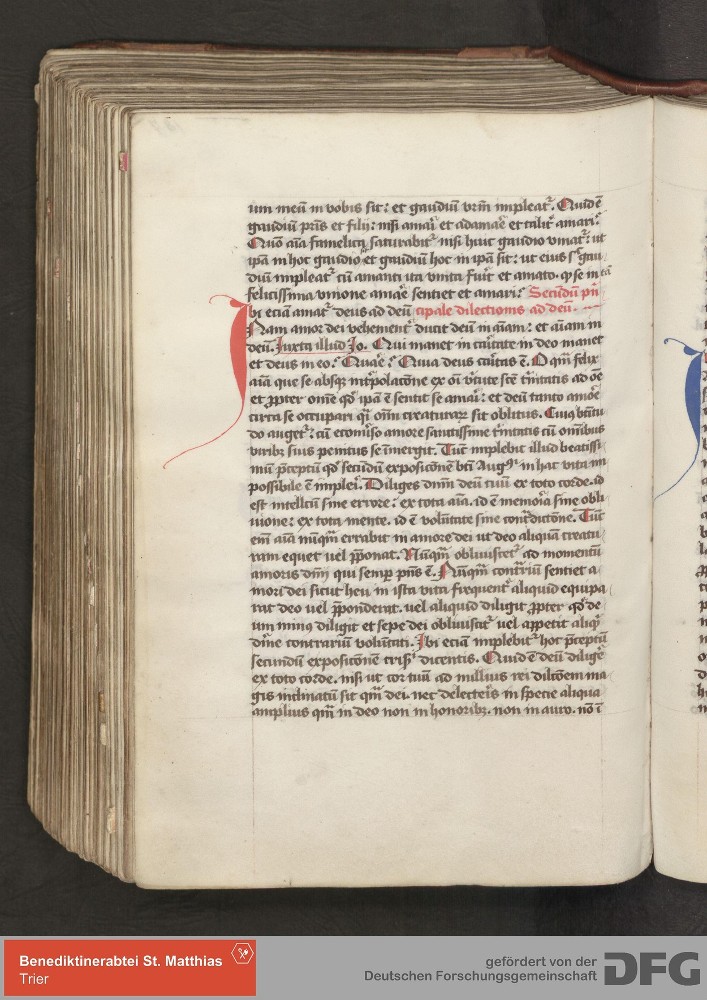 um meū in vobis sit: et gaudiū vrm̄ impleat᷑. Quid ē
gaudiū pr̄is et filij: nisi amai᷑ et adamae᷑ et talit᷑ amari:
Quō aīa famelica saturabit᷑ nisi huic gaudio vniat᷑: ut
ipā in hoc gaudio et gaudiū hoc in ipā sit: ut eius gau
diū impleat᷑ cū amanti ita vnita fuīt et amato. q̄ se in tā
felicissima vnione amāe sentiet et amari: Secundū prī
Ibi eciam amat᷑ deus ad deū cipale dilectionis ad deū.
Nam amor dei vehement᷑ ducit deū in aīam: et aīam in
deū. Juxta illud Jo. Qui manet in caritate in deo manet
et deus in eo: Quāe: Quia deus caritas ē. O qm̄ felix
aīa que se absqꝫ int᷑polacōne ex oī vtute stē tnitatis ad oē
et ꝓpter omē qd̄ ipā ē sentit se amai᷑: et deū tanto amōe
circa se occupari qi̇ oīm creaturaꝝ sit oblitus. Cuiꝰ btitu
do auget᷑: cū ecōuiso amore sanctissime tnitatis cū omībus
viribꝫ suis penitus se īmergit. Tūc implebit illud beatissi
mū p̄ceptū qd̄ secūdū exposicōnē bti Augꝰ in hac vita im
possibile ē implei᷑. Diliges dnm̄ deū tuū ex toto corde. id
est intellctū sine errore: ex tota aīa. id ē memoīa sine obli
uione: ex tota mente. id ē volūtate sine cont᷑dictōne. Tūc
eni᷑ aīa nūqm̄ errabit in amore dei ut deo aliquā creatu
ram equet vel p̄ponat. Nūqm̄ obliuiscet᷑ ad momentū
amoris dnī qui semp̄ pn̄s ē. Nūqm̄ cont᷑riū sentiet a
mori dei sicut heu in ista vita frequent᷑ aliquid equipa
rat deo vel p̄ponderat. vel aliquid diligit ꝓpter qd̄ de
um minꝰ diligit et sepe dei obliuiscit᷑ vel appetit aliqd̄
diuīe contrarium volūtati. Ibi eciam implebit᷑ hoc p̄ceptū
secundū exposicōnē crisꝰ dicentis. Quid ē deū diligē
ex toto corde. nisi ut cor tuū ad nullius rei dilcōem ma
gis inclinatū sit qm̄ dei. nec delecteris in specie aliqua
amplius qm̄ in deo non in honoribꝫ. non in auro. nō ī
Benediktinerabtei St. Matthias
Trier
gefördert von der
Deutschen Forschungsgemeinschaft
DFG